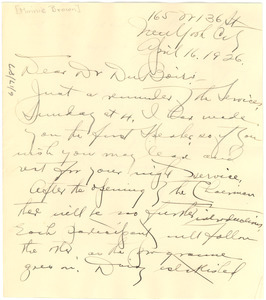 [Minnie Brown]
165 W 136 St
New York City
April 16, 1926.
Dear Dr Du Bois-
Just a reminder of the Service,
Sunday at 4. I have made
you the first speaker, so if you
wish you may leave and
rest for your night service,
after the opening of the Chairman
there will be no further introductions,
Each participant will follow
the other as the programme
goes on.